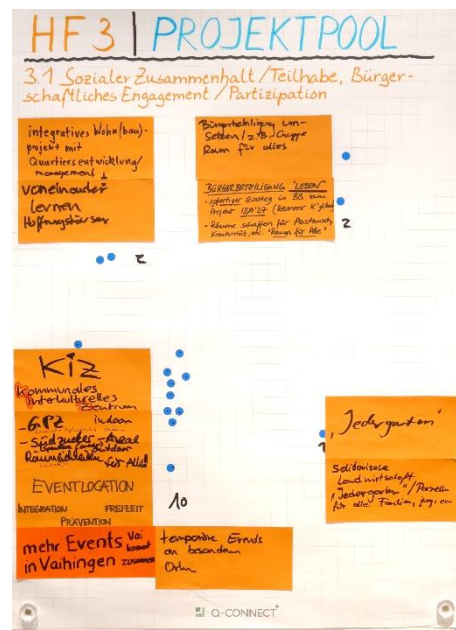 HF3 | PROJEKTPOOL
3.1 Sozialer Zusammenhalt/Teilhabe, Bürger-
schaftliches Engagement/Partizipation
integratives Wohn(bau)-
projekt mit
Quartiersentwicklung/
management
voneinander
lernen
2
Bürgerbeteiligung um-
setzen/z.B. Gruppe
Raum für alles
BÜRGERBETEILIGUNG "LEBEN"
- sofortiger Einstieg in BB zum
Projekt IBA'27
- Räume schaffen für Austausch,
Kreativität, etc. "Raum für Alle"
2
KiZ
Kommunales
Interkulturelles
Zentrum
- GPZ indoor
- Südzucker-Areal
outdoor
Räumlichkeiten für Alle
EVENTLOCATION
INTEGRATION FREIZEIT
PRÄVENTION
mehr Events Vai
in Vaihingen kommt
zusammen
10
temporäre Events
an besondern
Orten
1
"Jedergarten"
Solidarische
Landwirtschaft
"Jedergarten"/Parzellen
für alle Familien, jung, em
Q-CONNECT